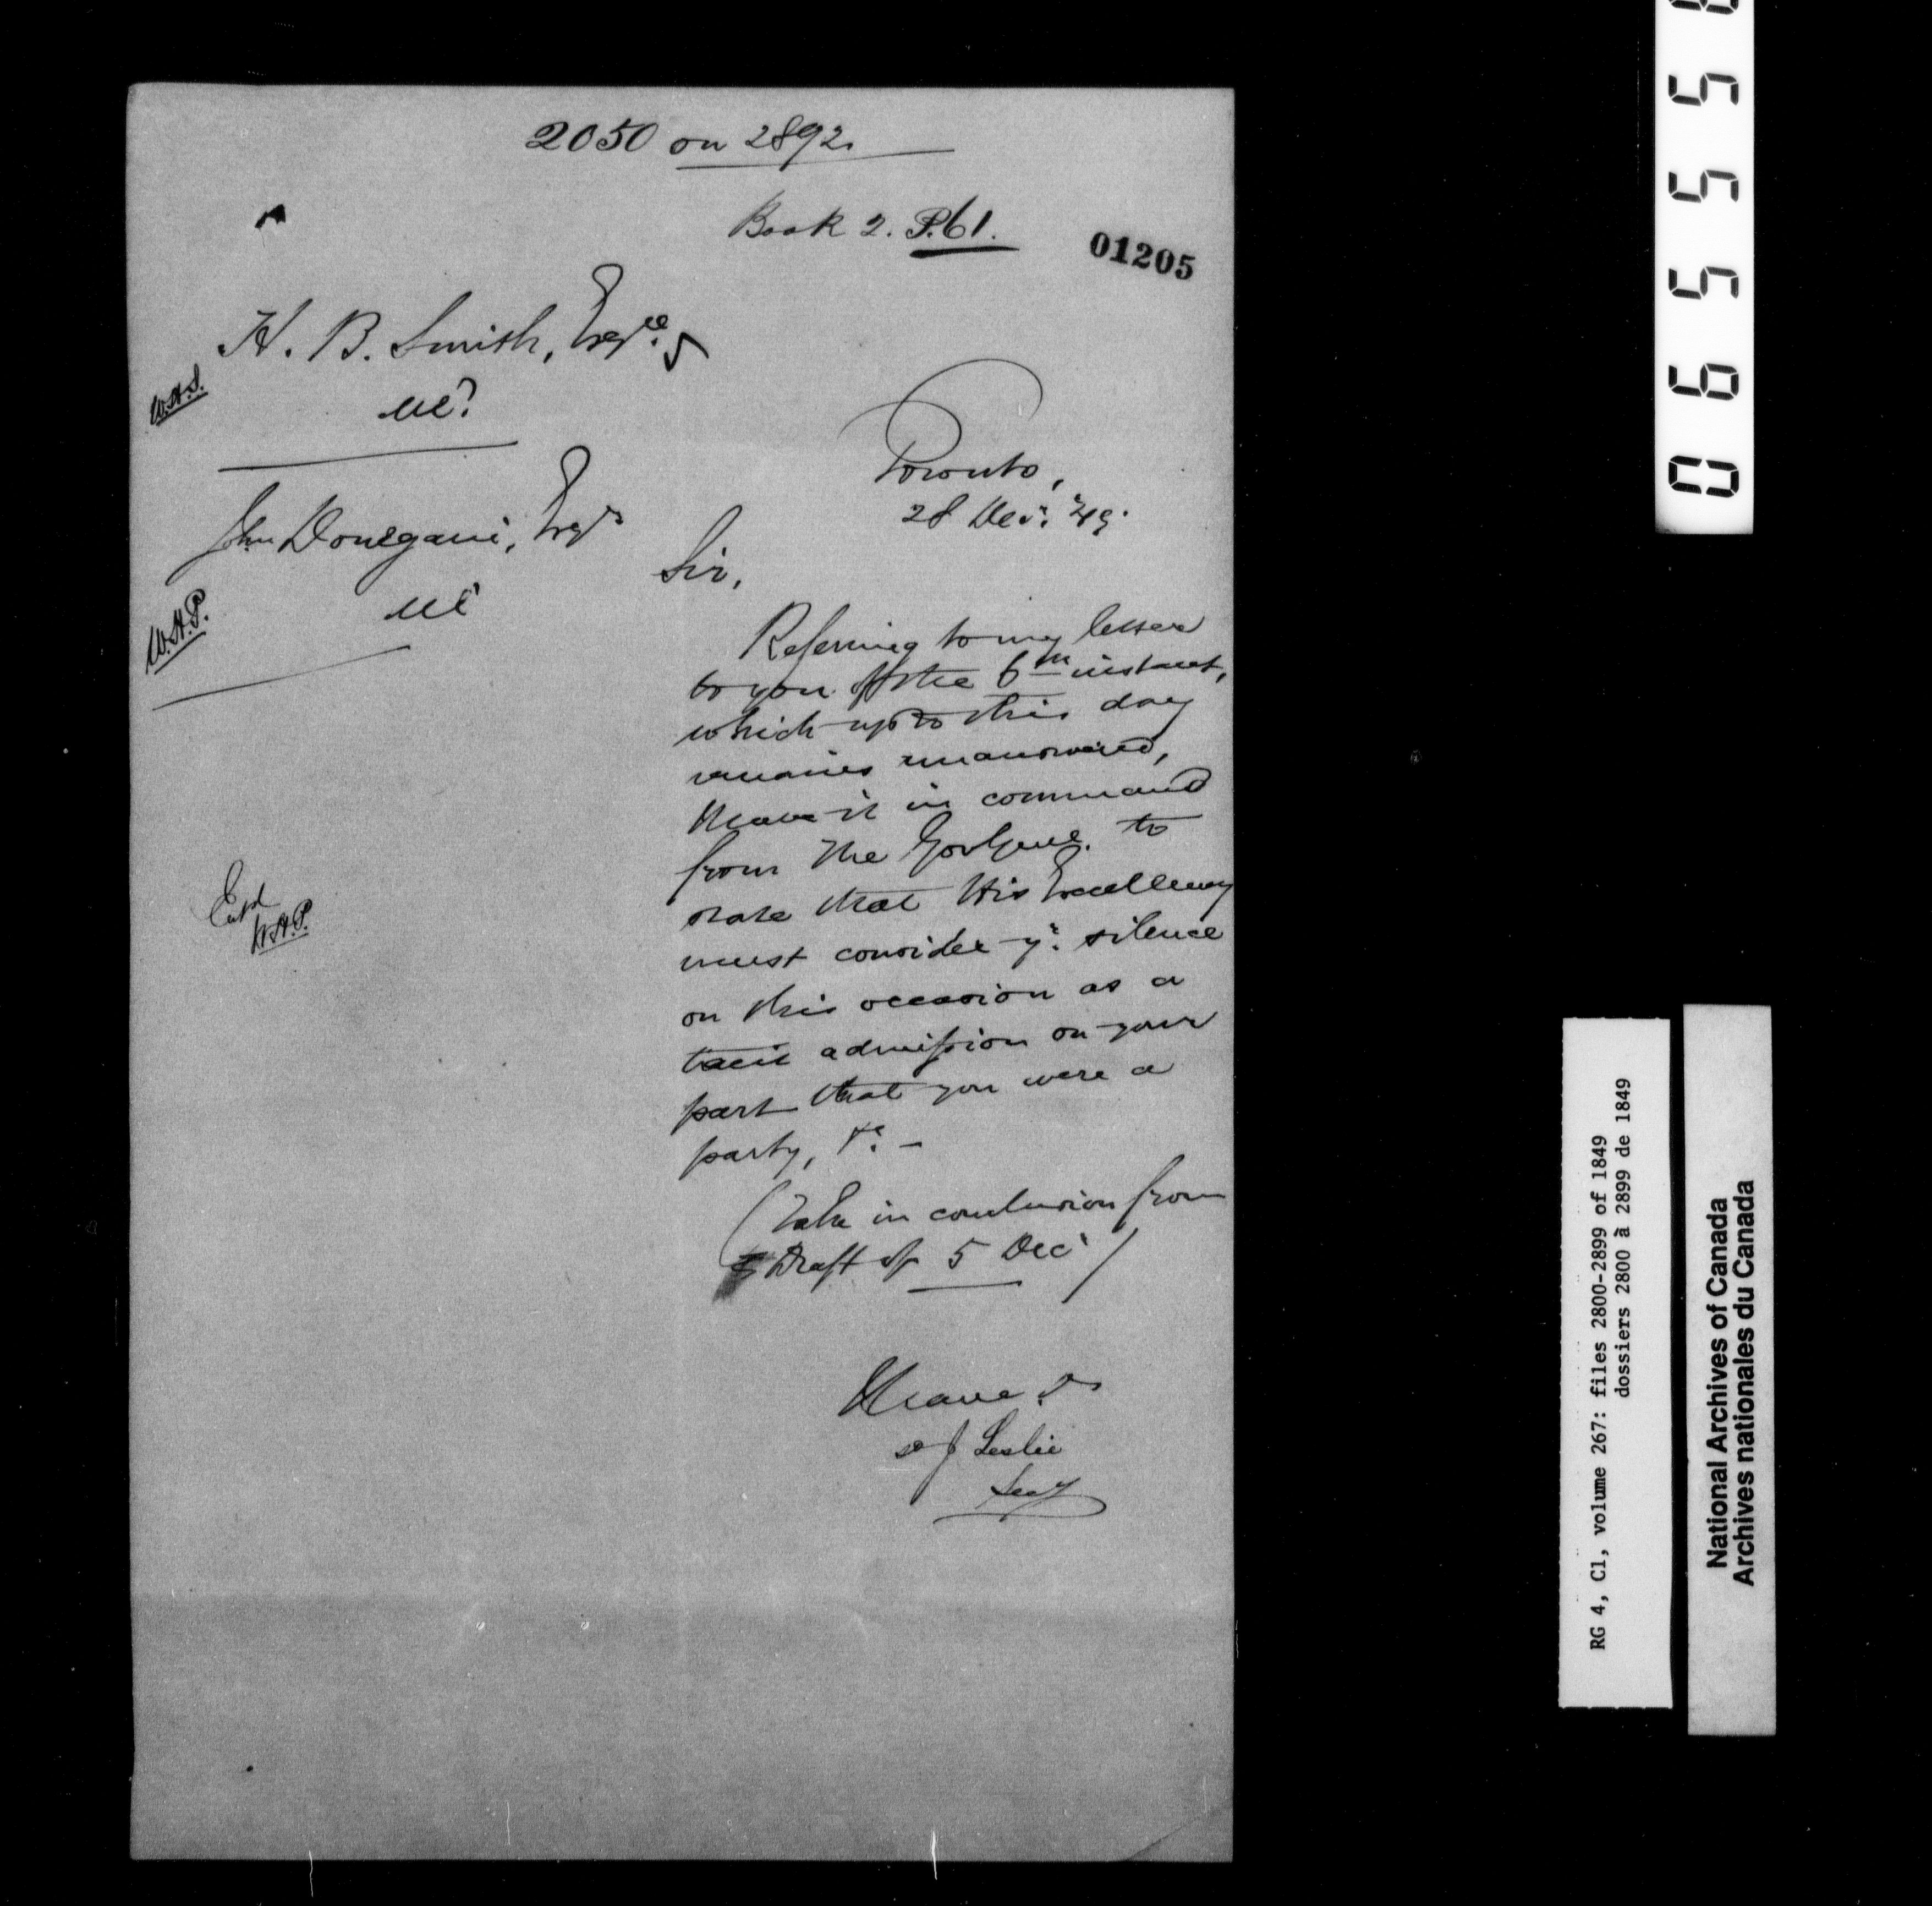 2050 on 2892.
Book 2. P.61.
01205
H. B. Smith, Esqre.,
Ml?
W.H.P.
Toronto,
28 Decr. '49.
John Donegani, Esqr
Ml
W.H.P.
Sir,
Referring to my letter
to you of the 6th instant,
which up to this day
remains unanswered,
I have it in command
from The Govr Genl. to
state that His Excellency
must consider yr. silence
on this occasion as a
tacit admission on your
part that you were a
party, &c. –
(Take in conclusion from
Draft of 5 Decr)
I have &
J Leslie
Secy
Entd
W.H.P.
06555
RG 4, C1, volume 267: files 2800-2899 of 1849
dossiers 2800 à 2899 de 1849
National Archives of Canada
Archives nationales du Canada